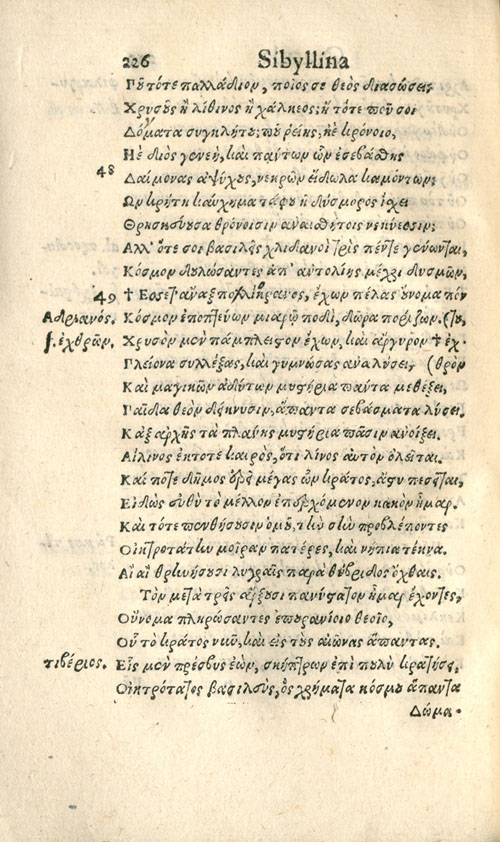 226 Sibyllina
Ποῦ τότε παλλάδιον, ποῖός σε θεὸς διασώσει,
Χρυσοῦς ἢ λίθινος ἢ χάλκεος; ἢ τότε ποῦ σοι
Δόγματα συγκλήτου; ποῦ ῥείης, ἠὲ κρόνοιο,
Ἠὲ διὸς γενεὴ, καὶ πάντων ὧν ἐσεβάσθης
48 Δαίμονας ἀψύχους, νεκρῶν εἴδωλα καμόντων;
Ὧν κρήτη καύχημα τάφου ἡ δύσμορος ἕξει
Θρησκεύουσα θρόνοισιν ἀναισθήτοις νεκύεσσιν;
Ἀλλ' ὅτε σοι βασιλεῖς χλιδανοὶ τρὶς πέντε γένωνται,
Κόσμον δουλώσαντες ἀπ' ἀντολίης μέχρι δυσμῶν,
49 † Ἔσσετ' ἄναξ πολιόκρανος, ἔχων πέλας οὔνομα πόν
Ἀδριανός. Κόσμον ἐποπτεύων μιαρῷ ποδὶ, δῶρα πορίζων. (του,
f. ἐχθρῶν. Χρυσὸν μὲν πάμπλειστον ἔχων, καὶ ἄργυρον † ἐχ-
Πλείονα συλλέξας, καὶ γυμνώσας ἀναλύσει, (θρὸν
Καὶ μαγικῶν ἀδύτων μυστήρια πάντα μεθέξει,
Παῖδα θεὸν δεικνύσιν, ἅπαντα σεβάσματα λύσει.
Κἀξ ἀρχῆς τὰ πλάνης μυστήρια πᾶσιν ἀνοίξει.
Αἴλινος ἔκτοτε καιρὸς, ὅτι λίνος αὐτὸν ὀλεῖται.
Καί ποτε δῆμος ἐρεῖ μέγας ὧν κράτος, ἄστυ πεσεῖται,
Εἰδὼς εὐθὺ τὸ μέλλον ἐπερχόμενον κακὸν ἦμαρ.
Καὶ τότε πενθήσουσιν ὁμοῦ, τὴν σὴν προβλέποντες
Οἰκτροτάτην μοῖραν πατέρες, καὶ νήπια τέκνα.
Αἲ αἲ θρηνήσουσι λυγραῖς παρὰ θύβριδος ὄχθαις.
Τὸν μετὰ τρεῖς ἄρξουσι πανύστατον ἦμαρ ἔχοντες,
Οὔνομα πληρώσαντες ἐπουρανίοιο θεοῖο,
Οὗ τὸ κράτος νῦν, καὶ εἰς τοὺς αἰῶνας ἅπαντας.
τιβέριος. Εἷς μὲν πρέσβυς ἐὼν, σκήπτρων ἐπὶ πουλὺ κρατήσει,
Οἰκτρότατος βασιλεὺς, ὃς χρήματα κόσμου ἅπαντα
Δώμα-